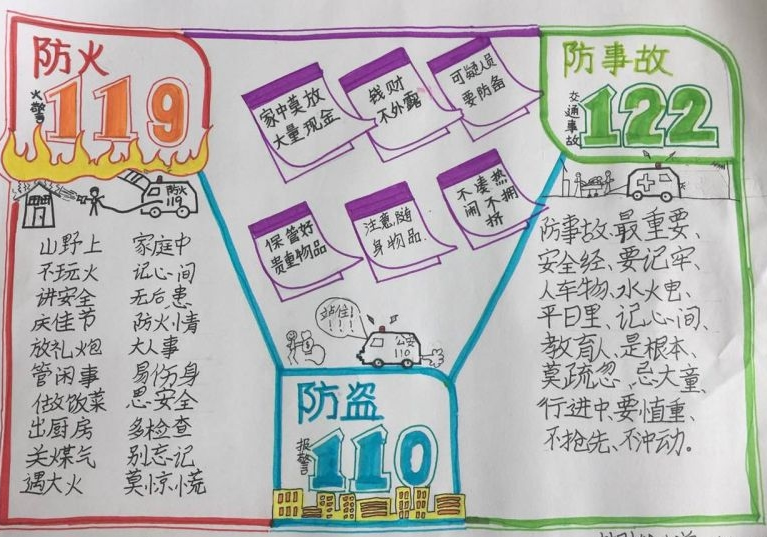 防火
火警
119
防火
119
山野上 家庭中
不玩火 记心间
讲安全 无后患
庆佳节 防火情
放礼炮 大人事
管闲事 易伤身
做饭菜 思安全
出厨房 多检查
关煤气 别忘记
遇大火 莫惊慌
家中莫放
大量现金
钱财
不外露
可疑人员
要防备
保管好
贵重物品
注意随
身物品.
不凑热
闹不拥
挤
站住!
!!!
公安
110
防盗
报警
110
防事故
交通事故
122
防事故、最重要、
安全经、要记牢、
人车物、水火电、
平日里、记心间、
教育人、是根本、
莫疏忽、忌大童、
行进中、要慎重、
不抢先、不冲动。